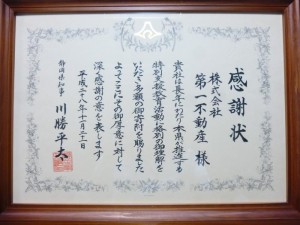 感謝状
株式会社
第一不動産 様
貴社は長年にわたり本県が推進する
特別支援教育活動に格別の御理解を
いただき多額の御寄附を賜りました
よってここにその御厚意に対して
深く感謝の意を表します
平成二十八年十一月二十二日
静岡県知事 川勝平太